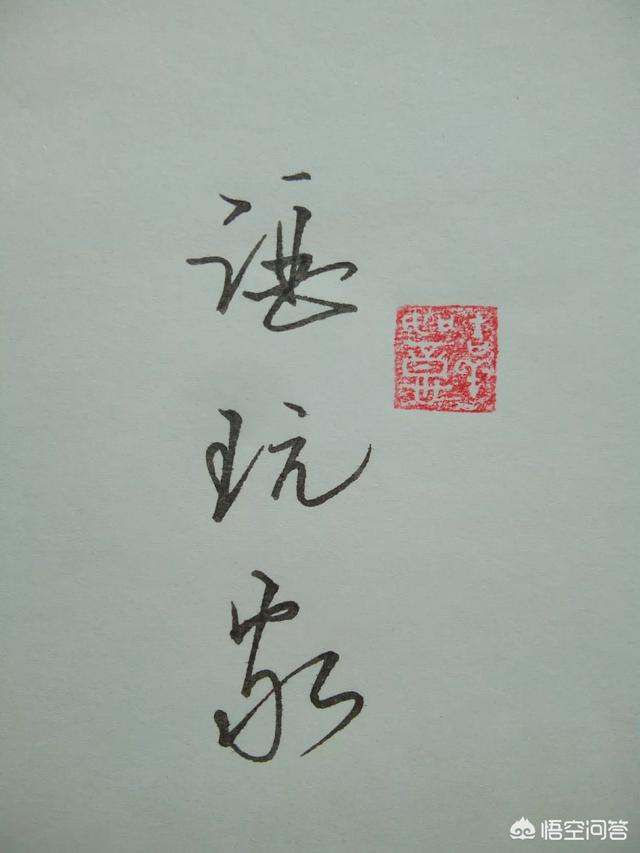 谌
玩
家
悟空问答